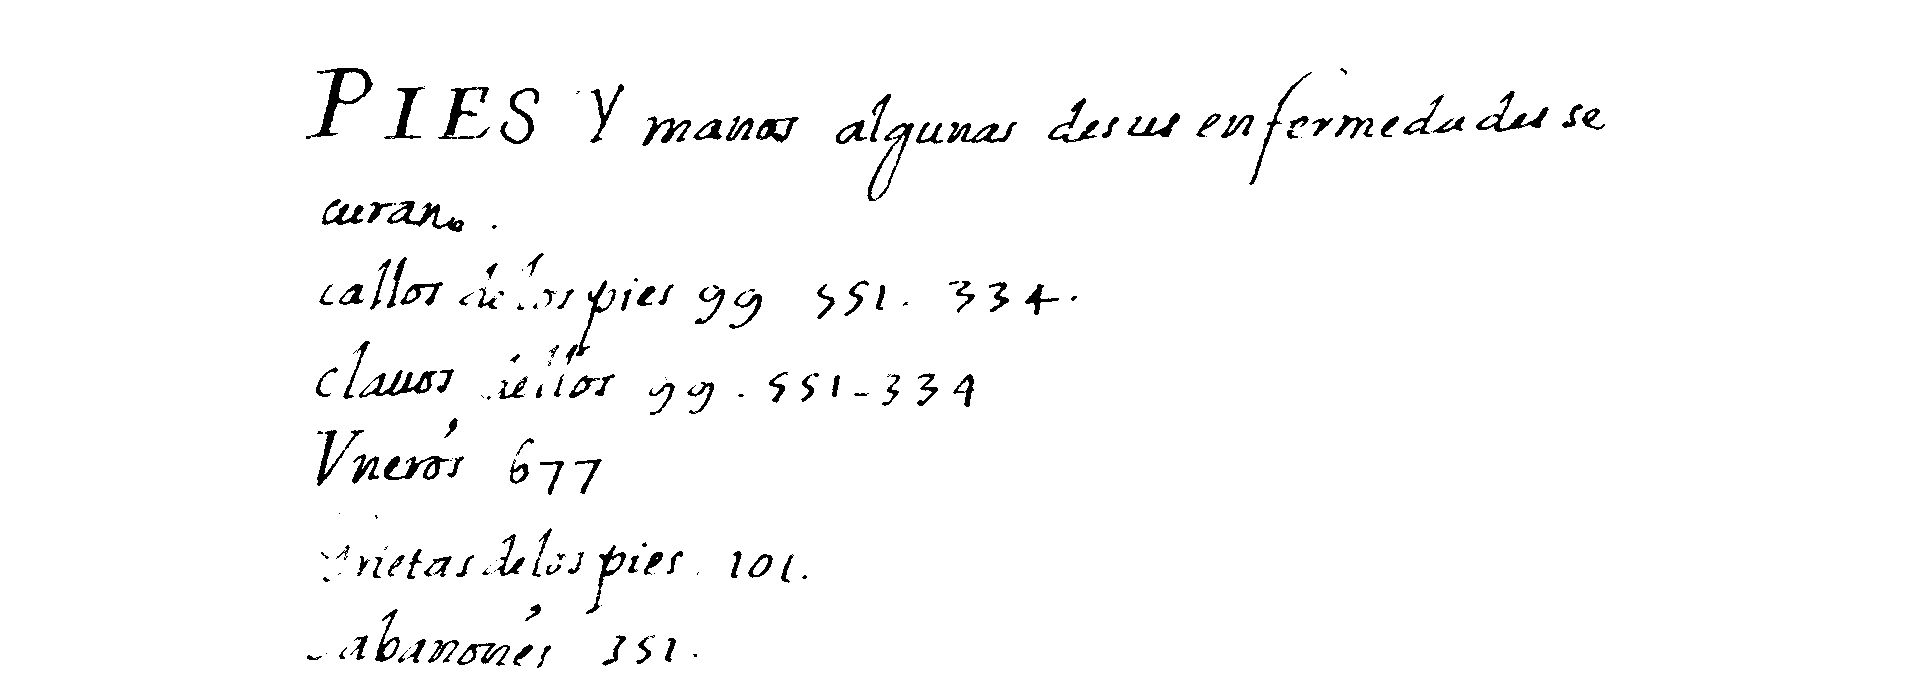 PIES Y manos algunas desus enfermedades se
curan.
callos delos pies 99 551. 334.
clauos dellos 99. 551-334
Vneros 677
Grietas delos pies. 101.
Sabanones 351.